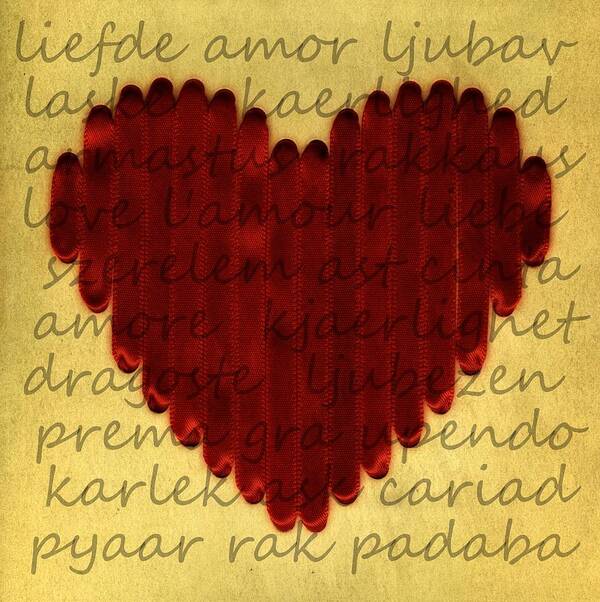 liefde amor ljubav
laske kaerlighed
armastus rakkaus
love l'amour liebe
szerelem ast cinta
amore kjaerlighet
dragoste ljubezen
prema gra upendo
karlek ask cariad
pyaar rak padaba